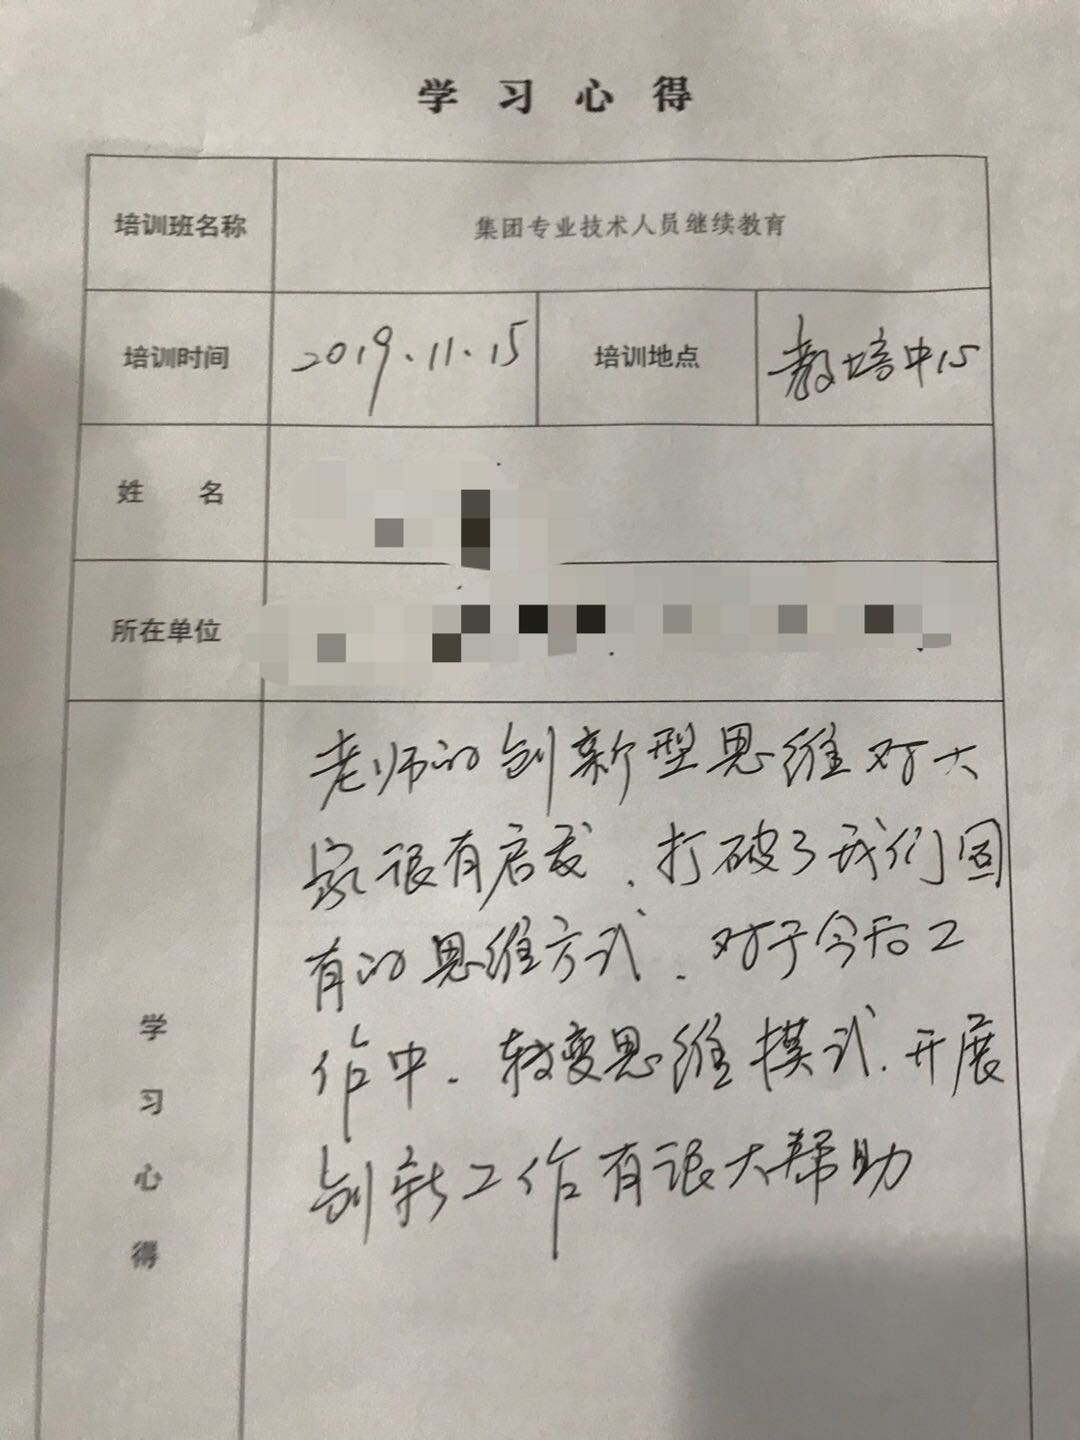 学 习 心 得
培训班名称 集团专业技术人员继续教育
培训时间 2019.11.15 培训地点 教培中心
姓 名
所在单位
学习心得
老师的创新型思维对大
家很有启发、打破了我们固
有的思维方式、对于今后工
作中、转变思维模式、开展
创新工作有很大帮助